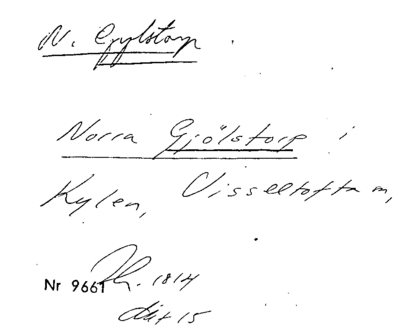 N. Gyllstorp
Norra Gjölstorp i
Kylen, Visseltofta m,
Nr 9661 Jh. 1814
d 15